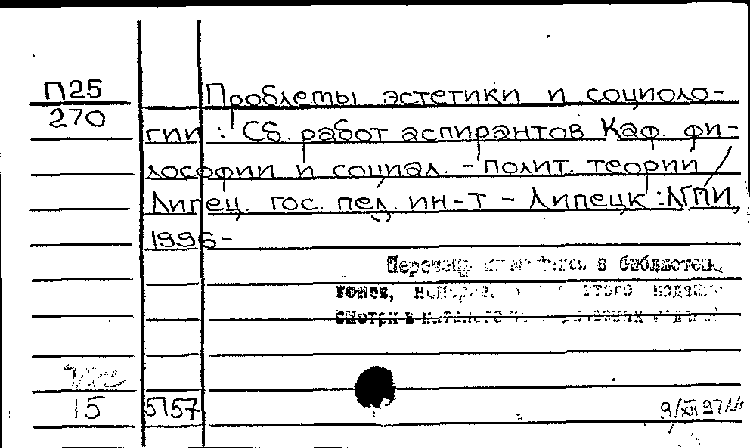 П25
270
Проблемы эстетики и социоло-
гии : Сб. работ аспирантов Каф. фи-
лософии и социал. - полит. теории
Липец. гос. пед. ин-т - Липецк : ЛГПИ,
1996-
Перечень в библиотеке,
томов, этого издания
смотри в каталоге
15
5757
9/XII 97